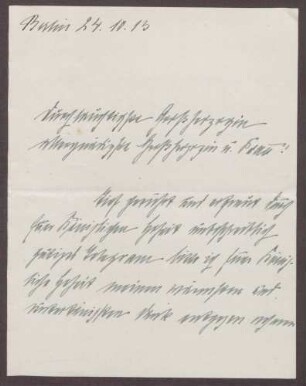 Berlin 24. 10. 13
Durchlauchtigste Großherzogin
allergnädigste Großherzogin u. Frau!
Hoch geehrt und erfreut durch
Euer Königlichen Hoheit
Telegramm bitte ich Euer König-
liche Hoheit meinen wärmsten und
Dank entgegen nehmen